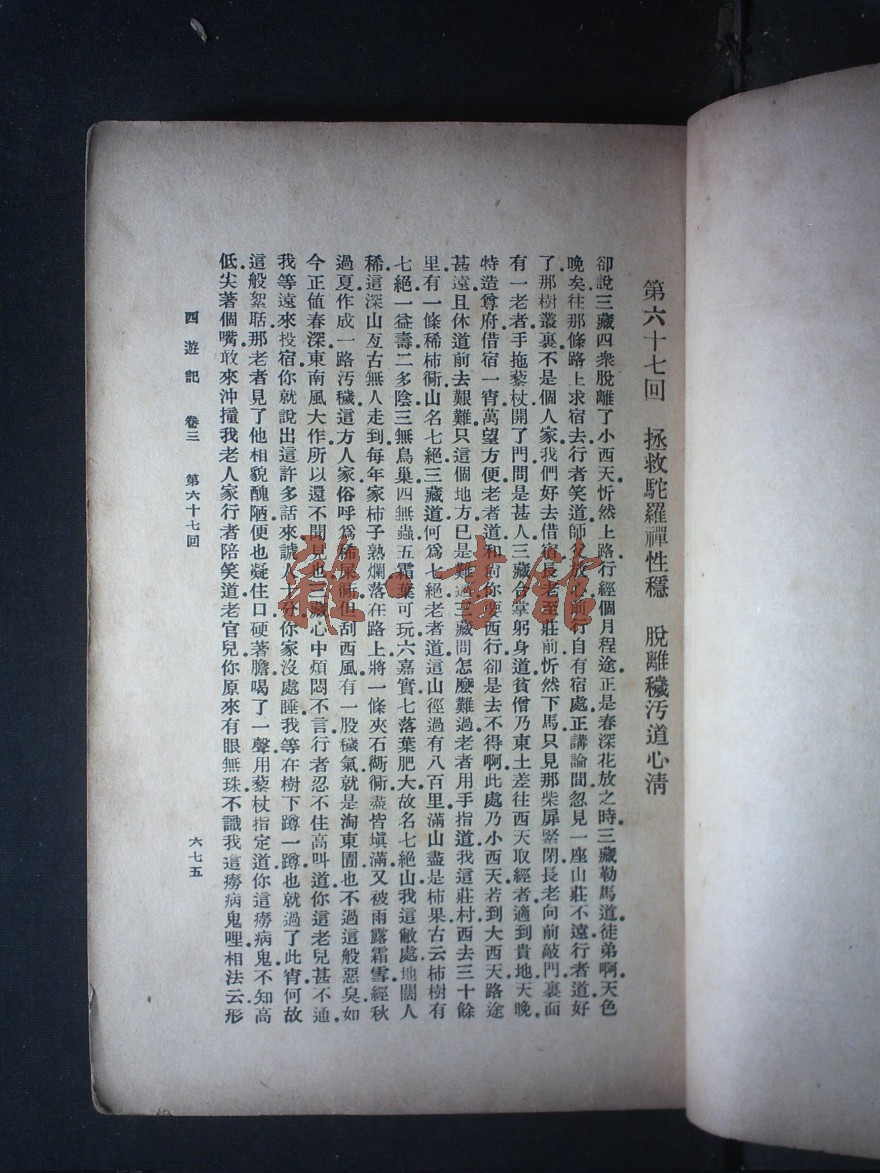 第六十七回　拯救駝羅禪性穩　脫離穢汚道心淸
卻說三藏四衆脫離了小西天忻然上路行經個月程途正是春深花放之時三藏勒馬道徒弟啊天色
晚矣往那條路上求宿去行者笑道師父放心前行自有宿處正講論間忽見一座山莊不遠行者道好
了那樹叢裏不是個人家我們好去借宿長老至莊前忻然下馬只見那柴扉緊閉長老向前敲門裏面
有一老者手拖藜杖開了門問是甚人三藏合掌躬身道貧僧乃東土差往西天取經者適到貴地天晚
特造尊府借宿一宵萬望方便老者道和尙你要西行卻是去不得啊此處乃小西天若到大西天路途
甚遠且休道前去艱難只這個地方已是難過三藏問怎麼難過老者用手指道我這莊村西去三十餘
里有一條稀柿衕山名七絕三藏道何爲七絕老者道這山徑過有八百里滿山盡是柿果古云柿樹有
七絕一益壽二多陰三無鳥巢四無蟲五霜葉可玩六嘉實七落葉肥大故名七絕山我這敝處地闊人
稀這深山亙古無人走到每年家柿子熟爛落在路上將一條夾石衚衕盡皆塡滿又被雨露霜雪經秋
過夏作成一路汚穢這方人家俗呼爲稀屎衕但刮西風有一股穢氣就是淘東圊也不過這般惡臭如
今正値春深東南風大作所以還不聞見也三藏心中煩悶不言行者忍不住高叫道你這老兒甚不通
我等遠來投宿你就說出這許多話來諕人十分你家沒處睡我等在樹下蹲一蹲也就過了此宵何故
這般絮聒那老者見了他相貌醜陋便也凝住口硬著膽喝了一聲用藜杖指定道你這癆病鬼不知高
低尖著個嘴敢來沖撞我老人家行者陪笑道老官兒你原來有眼無珠不識我這癆病鬼哩相法云形
西遊記　卷三　第六十七回　六七五
雜·書館